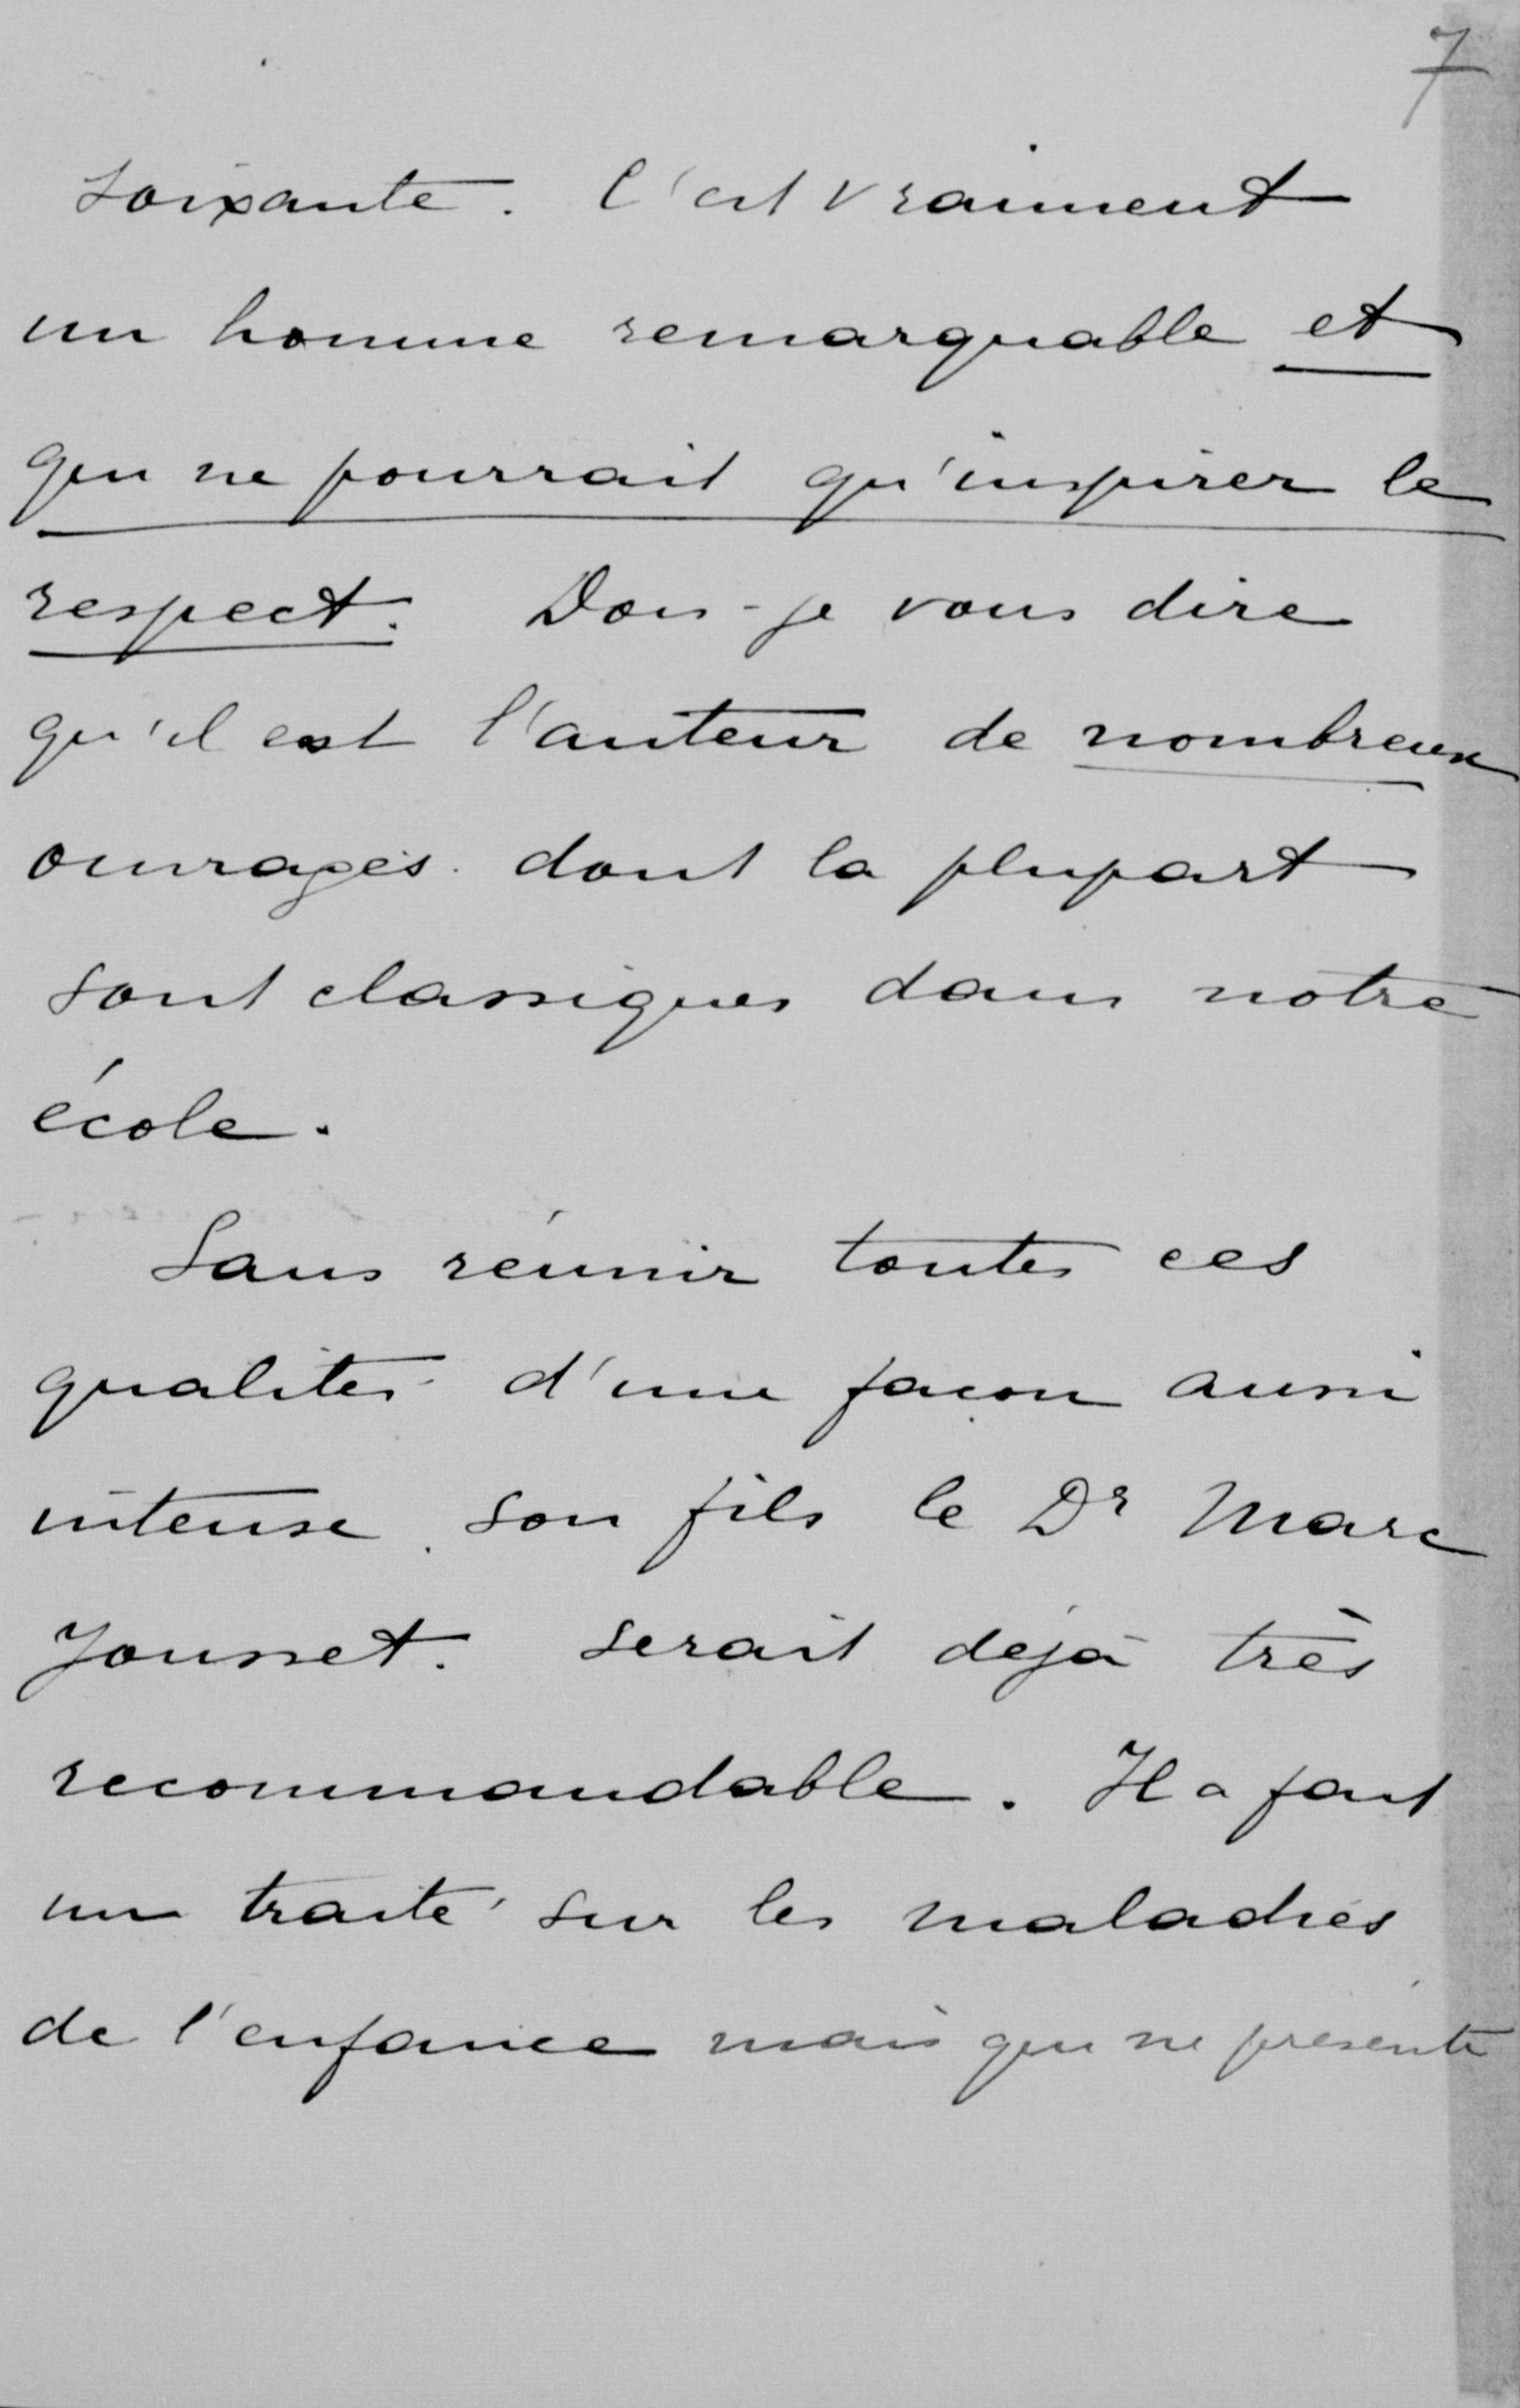 7
soixante. C'est vraiment
un homme remarquable et
qui ne pourrait qu'inspirer le
respect. Dois-je vous dire
qu'il est l'auteur de nombreux
ouvrages dont la plupart
sont classiques dans notre
école.
Sans réunir toutes ces
qualités d'une façon aussi
intense son fils le Dr Marc
Jousset. serait déjà très
recommandable. Il a fait
un traité sur les maladies
de l'enfance mais qui ne présente